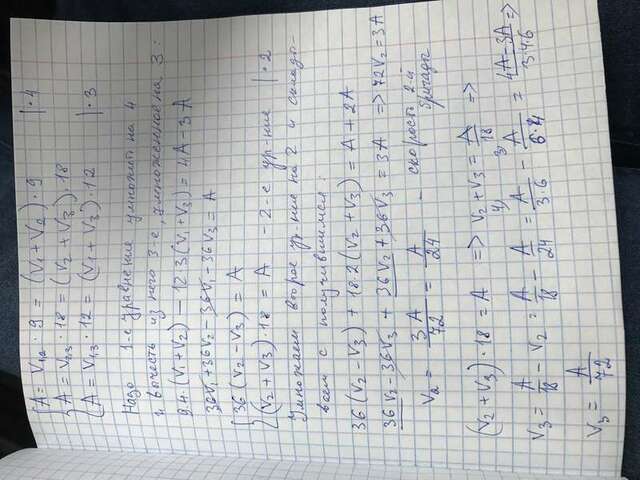 { A = V₁,₂ · 9 = (V₁ + V₂) · 9 | · 4
A = V₂,₃ · 18 = (V₂ + V₃) · 18
A = V₁,₃ · 12 = (V₁ + V₃) · 12 | · 3
Надо 1-е уравнение умножить на 4
и вычесть из него 3-е, умноженное на 3:
9·4·(V₁ + V₂) - 12·3(V₁ + V₃) = 4A - 3A
36V₁ + 36V₂ - 36V₁ - 36V₃ = A
{ 36(V₂ - V₃) = A
(V₂ + V₃) · 18 = A - 2-е ур-ние | · 2
Умножаем второе ур-ние на 2 и склады-
ваем с получившимся:
36(V₂ - V₃) + 18·2(V₂ + V₃) = A + 2A
36V₂ - 36V₃ + 36V₂ + 36V₃ = 3A => 72V₂ = 3A
V₂ = 3A/72 = A/24 - скорость 2-й бригады
(V₂ + V₃) · 18 = A => V₂ + V₃ = A/18 =>
V₃ = A/18 - V₂ = A/18 - A/24 = 4) A/3·6 - 3) A/6·4 = 4A - 3A/3·4·6 =>
V₃ = A/72